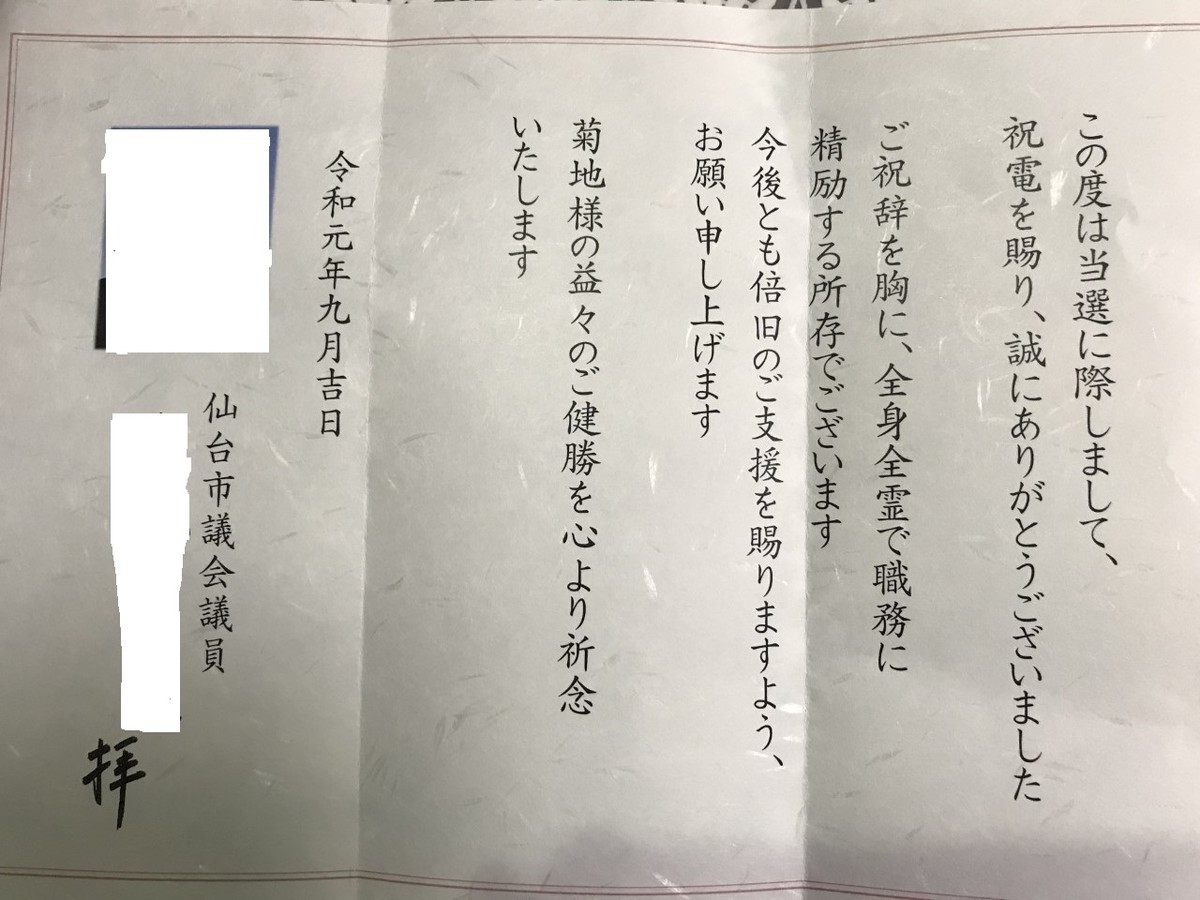 この度は当選に際しまして、
祝電を賜り、誠にありがとうございました
ご祝辞を胸に、全身全霊で職務に
精励する所存でございます
今後とも倍旧のご支援を賜りますよう、
お願い申し上げます
菊地様の益々のご健勝を心より祈念
いたします
令和元年九月吉日
仙台市議会議員
拝